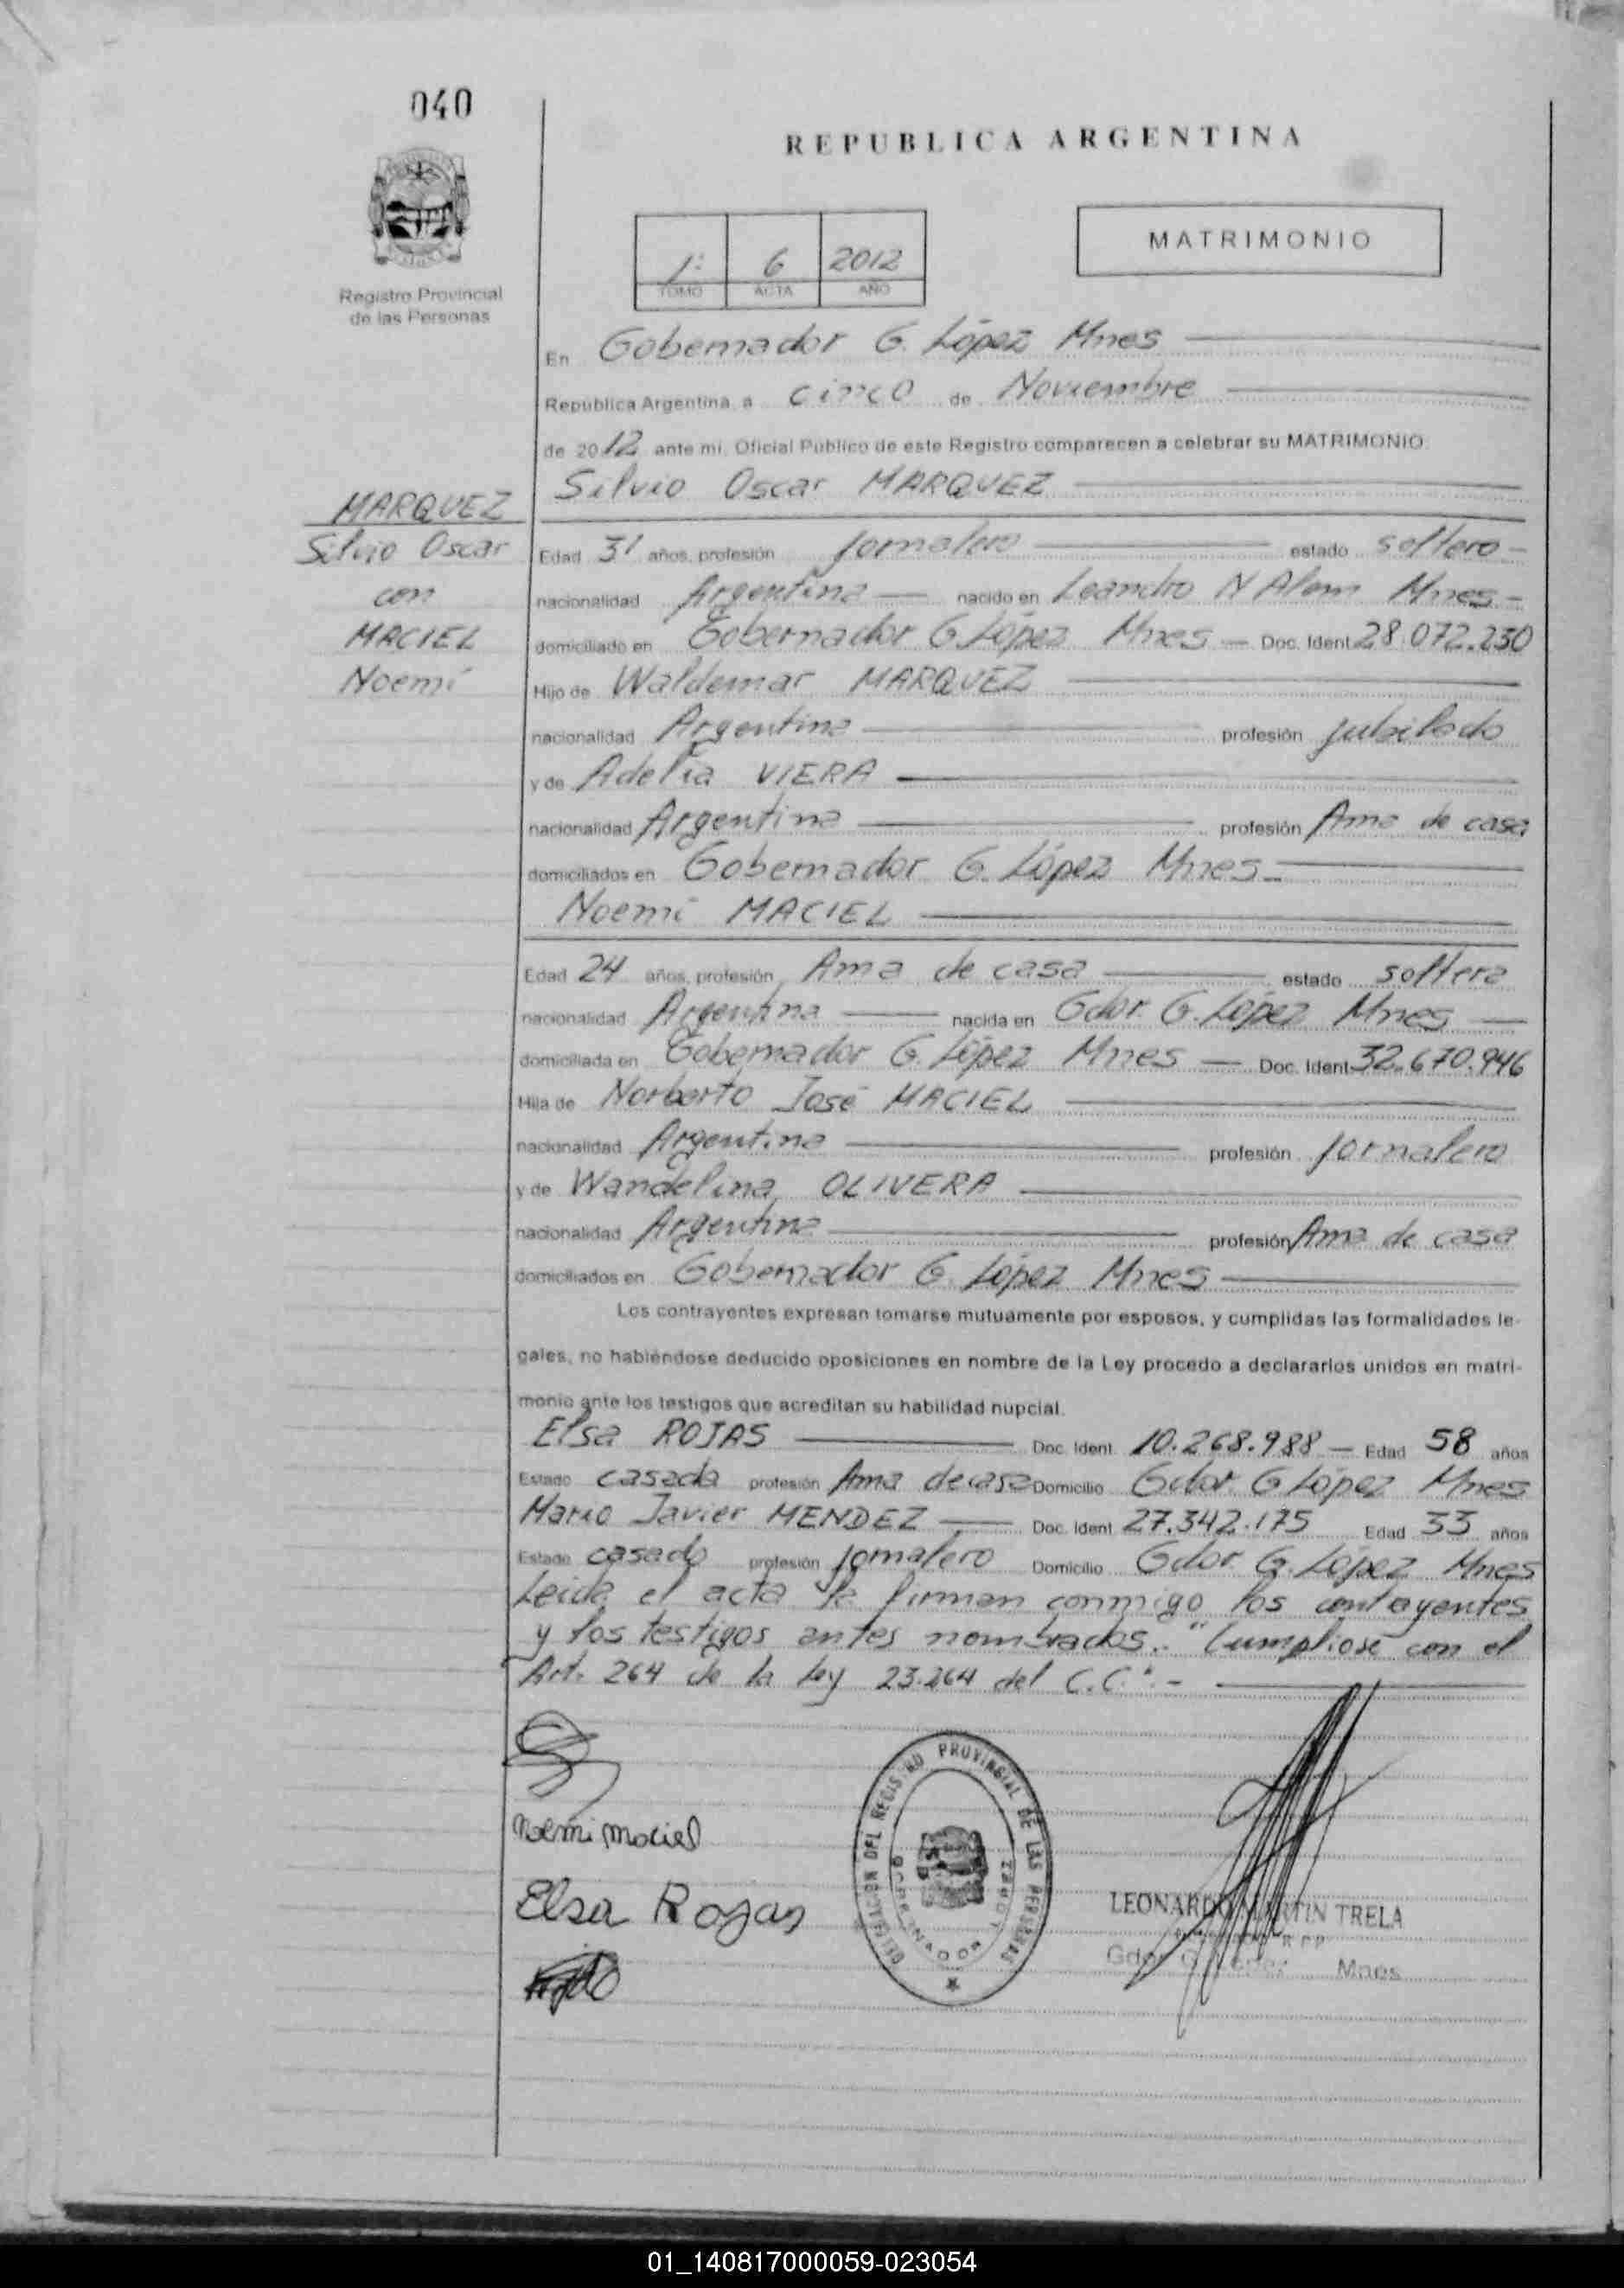 040
REPUBLICA ARGENTINA
MATRIMONIO
1º 6 2012
TOMO ACTA AÑO
Registro Provincial
de las Personas
En Gobernador G. López Mnes
República Argentina, a cinco de Noviembre
de 2012 ante mi, Oficial Público de este Registro comparecen a celebrar su MATRIMONIO
MARQUEZ
Silvio Oscar
con
MACIEL
Noemí
Silvio Oscar MARQUEZ
Edad 31 años, profesión Jornalero estado soltero
nacionalidad Argentina nacido en Leandro N Alem Mnes
domiciliado en Gobernador G. López Mnes Doc. Ident 28.072.230
Hijo de Waldemar MARQUEZ
nacionalidad Argentina profesión Jubilado
y de Adelia VIERA
nacionalidad Argentina profesión Ama de casa
domiciliados en Gobernador G. López Mnes
Noemí MACIEL
Edad 24 años, profesión Ama de casa estado soltera
nacionalidad Argentina nacida en Gdor. G. López Mnes
domiciliada en Gobernador G. López Mnes Doc. Ident 32.670.946
Hija de Norberto José MACIEL
nacionalidad Argentina profesión Jornalero
y de Wandelina OLIVERA
nacionalidad Argentina profesión Ama de casa
domiciliados en Gobernador G. López Mnes
Los contrayentes expresan tomarse mutuamente por esposos, y cumplidas las formalidades le-
gales, no habiéndose deducido oposiciones en nombre de la Ley procedo a declararlos unidos en matri-
monio ante los testigos que acreditan su habilidad nupcial.
Elsa ROJAS Doc. Ident. 10.268.988 Edad 58 años
Estado casada profesión Ama de casa Domicilio Gdor. G. López Mnes
Mario Javier MENDEZ Doc. Ident. 27.342.175 Edad 33 años
Estado casado profesión Jornalero Domicilio Gdor. G. López Mnes
Leida el acta la firman conmigo los contrayentes
y los testigos antes nombrados. "Cumpliose con el
Art. 264 de la Ley 23.264 del C.C".-
Noemi Maciel
Elsa Rojas
DELEGACION DEL REGISTRO PROVINCIAL DE LAS PERSONAS
GOBERNADOR LOPEZ
LEONARDO MARTIN TRELA
R P P
Gdor. G. López Mnes
01_140817000059-023054